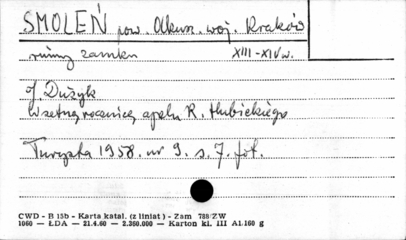 SMOLEŃ pow. Olkusz. woj. Kraków
ruiny zamku XIII-XIV w.
J. Dużyk
W setną rocznicę apelu R. Hubickiego
Turysta 1958. nr 9. s. 7. fot.
CWD - B 15b - Karta katal. (z liniat) - Zam 788/ZW
1060 — ŁDA — 21.4.60 — 2.360.000 — Karton kl. III A1.160 g